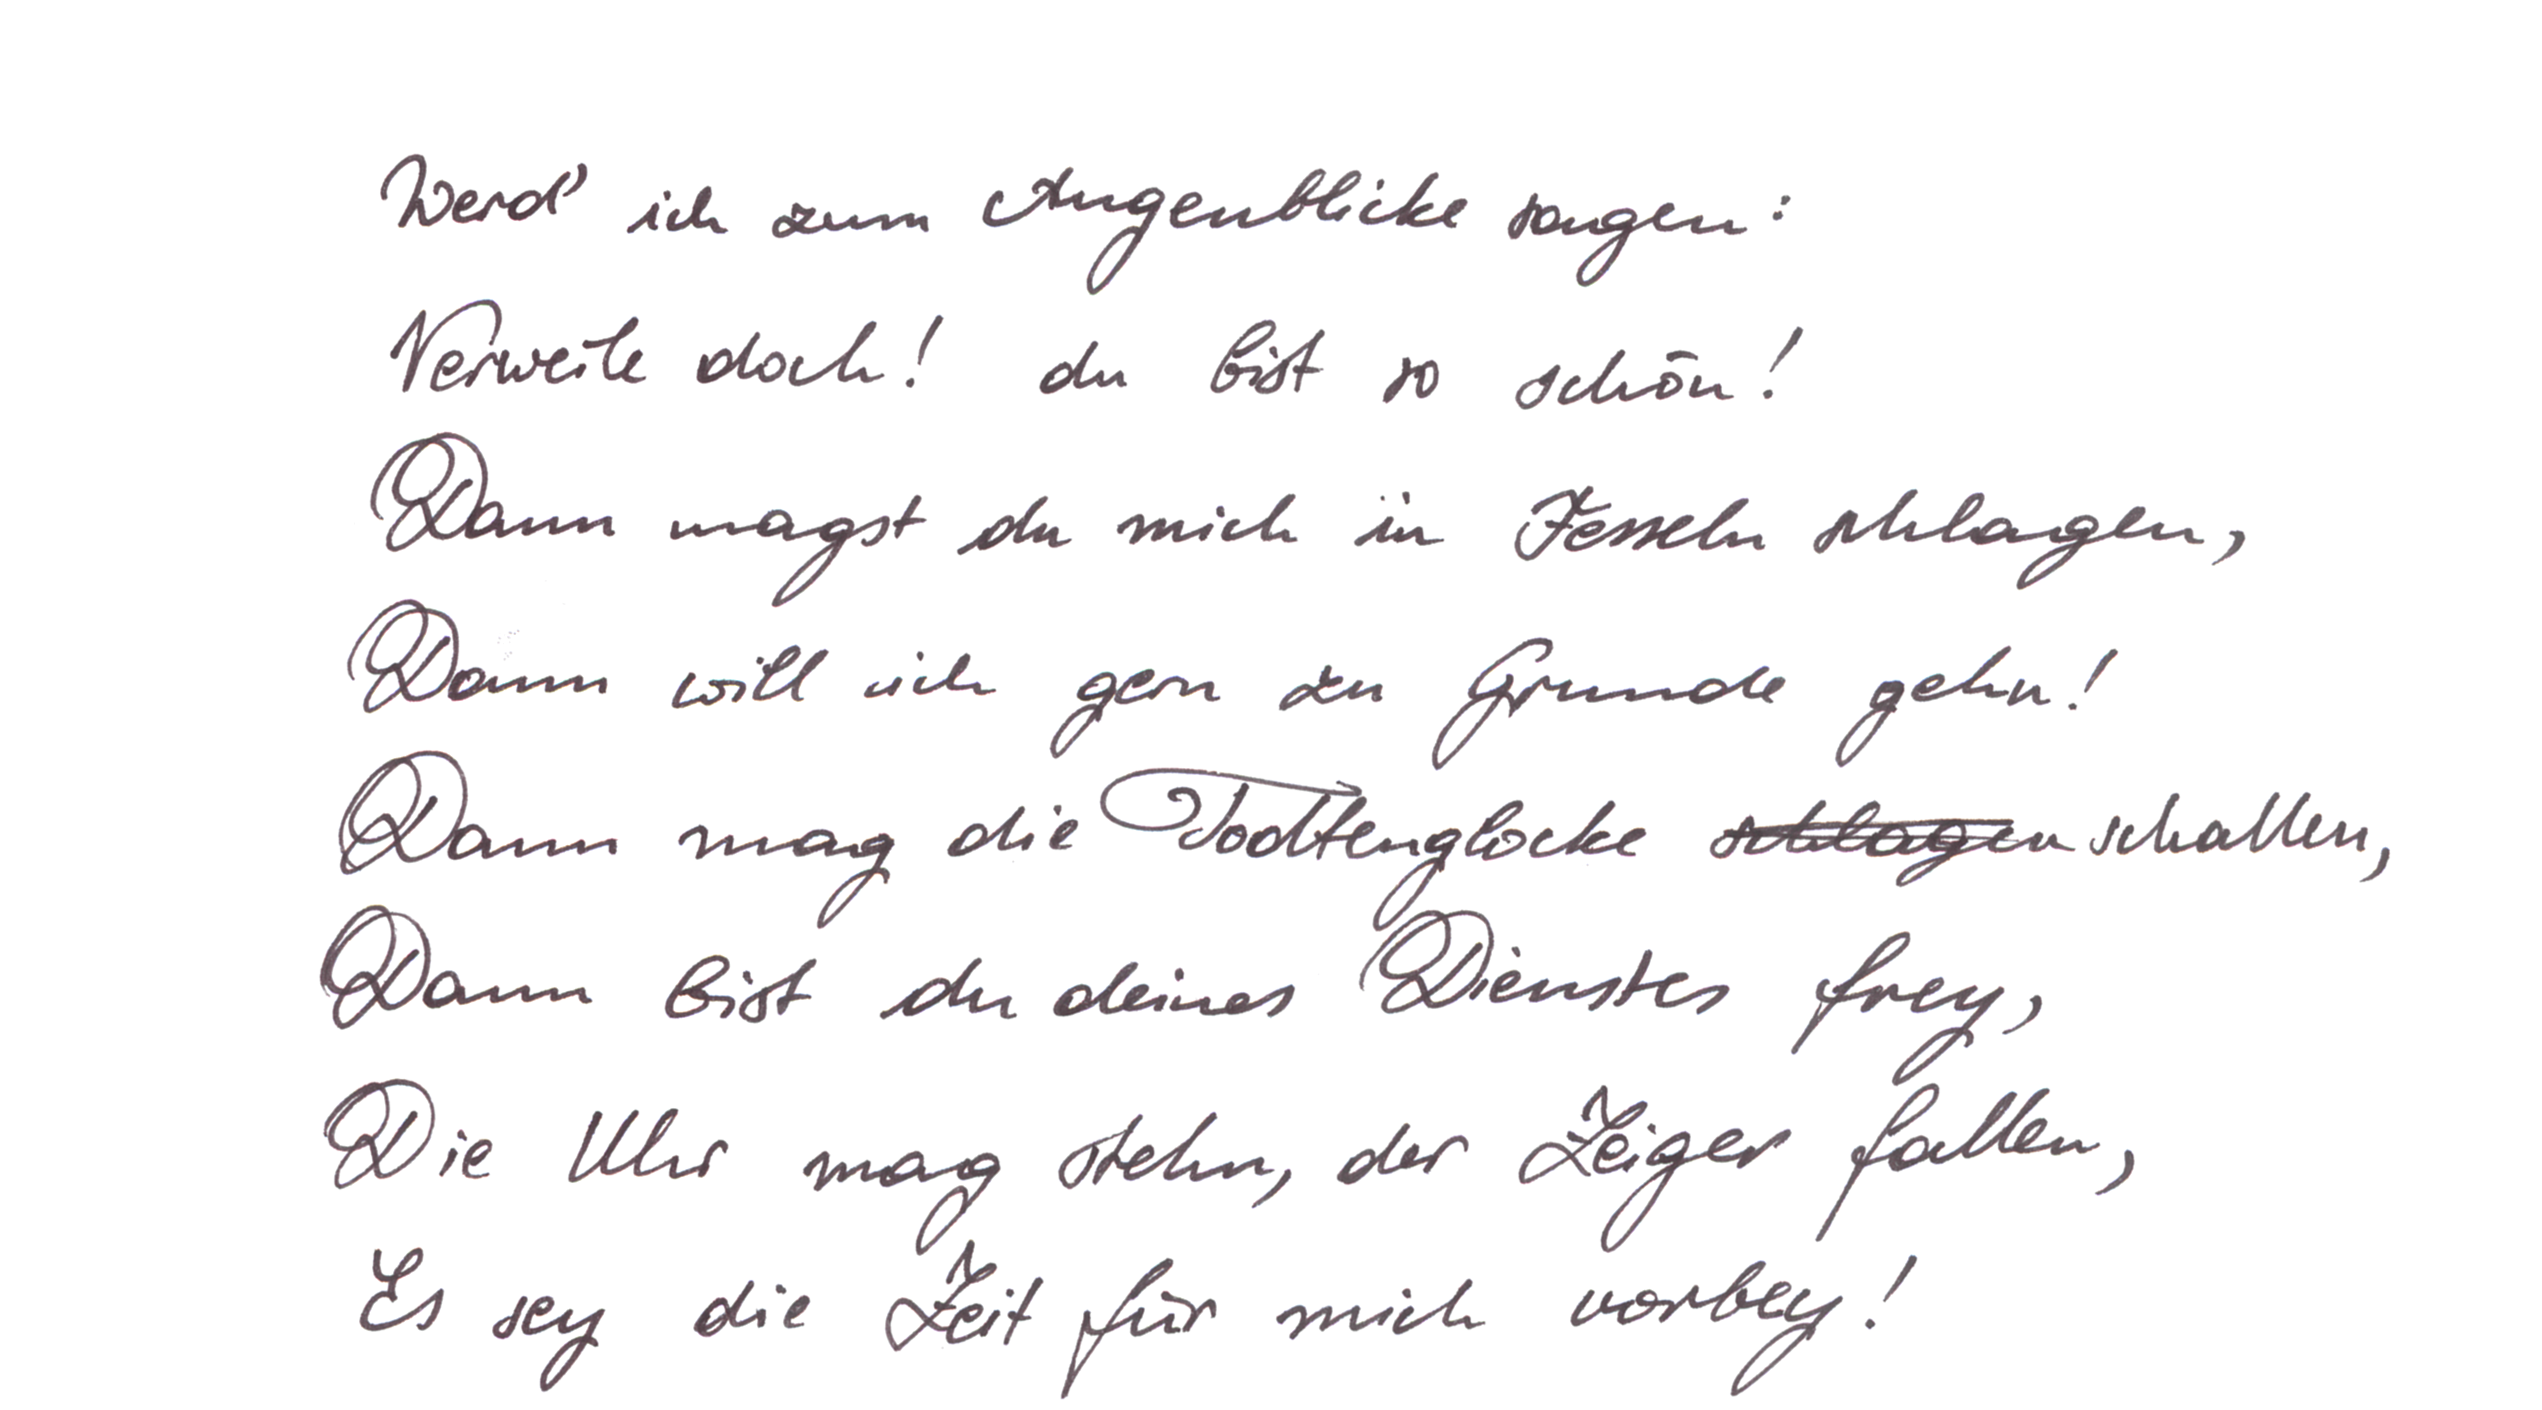 Werd' ich zum Augenblicke sagen:
Verweile doch! du bist so schön!
Dann magst du mich in Fesseln schlagen,
Dann will ich gern zu Grunde gehn!
Dann mag die Todtenglocke schlagen schallen,
Dann bist du deines Dienstes frey,
Die Uhr mag stehn, der Zeiger fallen,
Es sey die Zeit für mich vorbey!